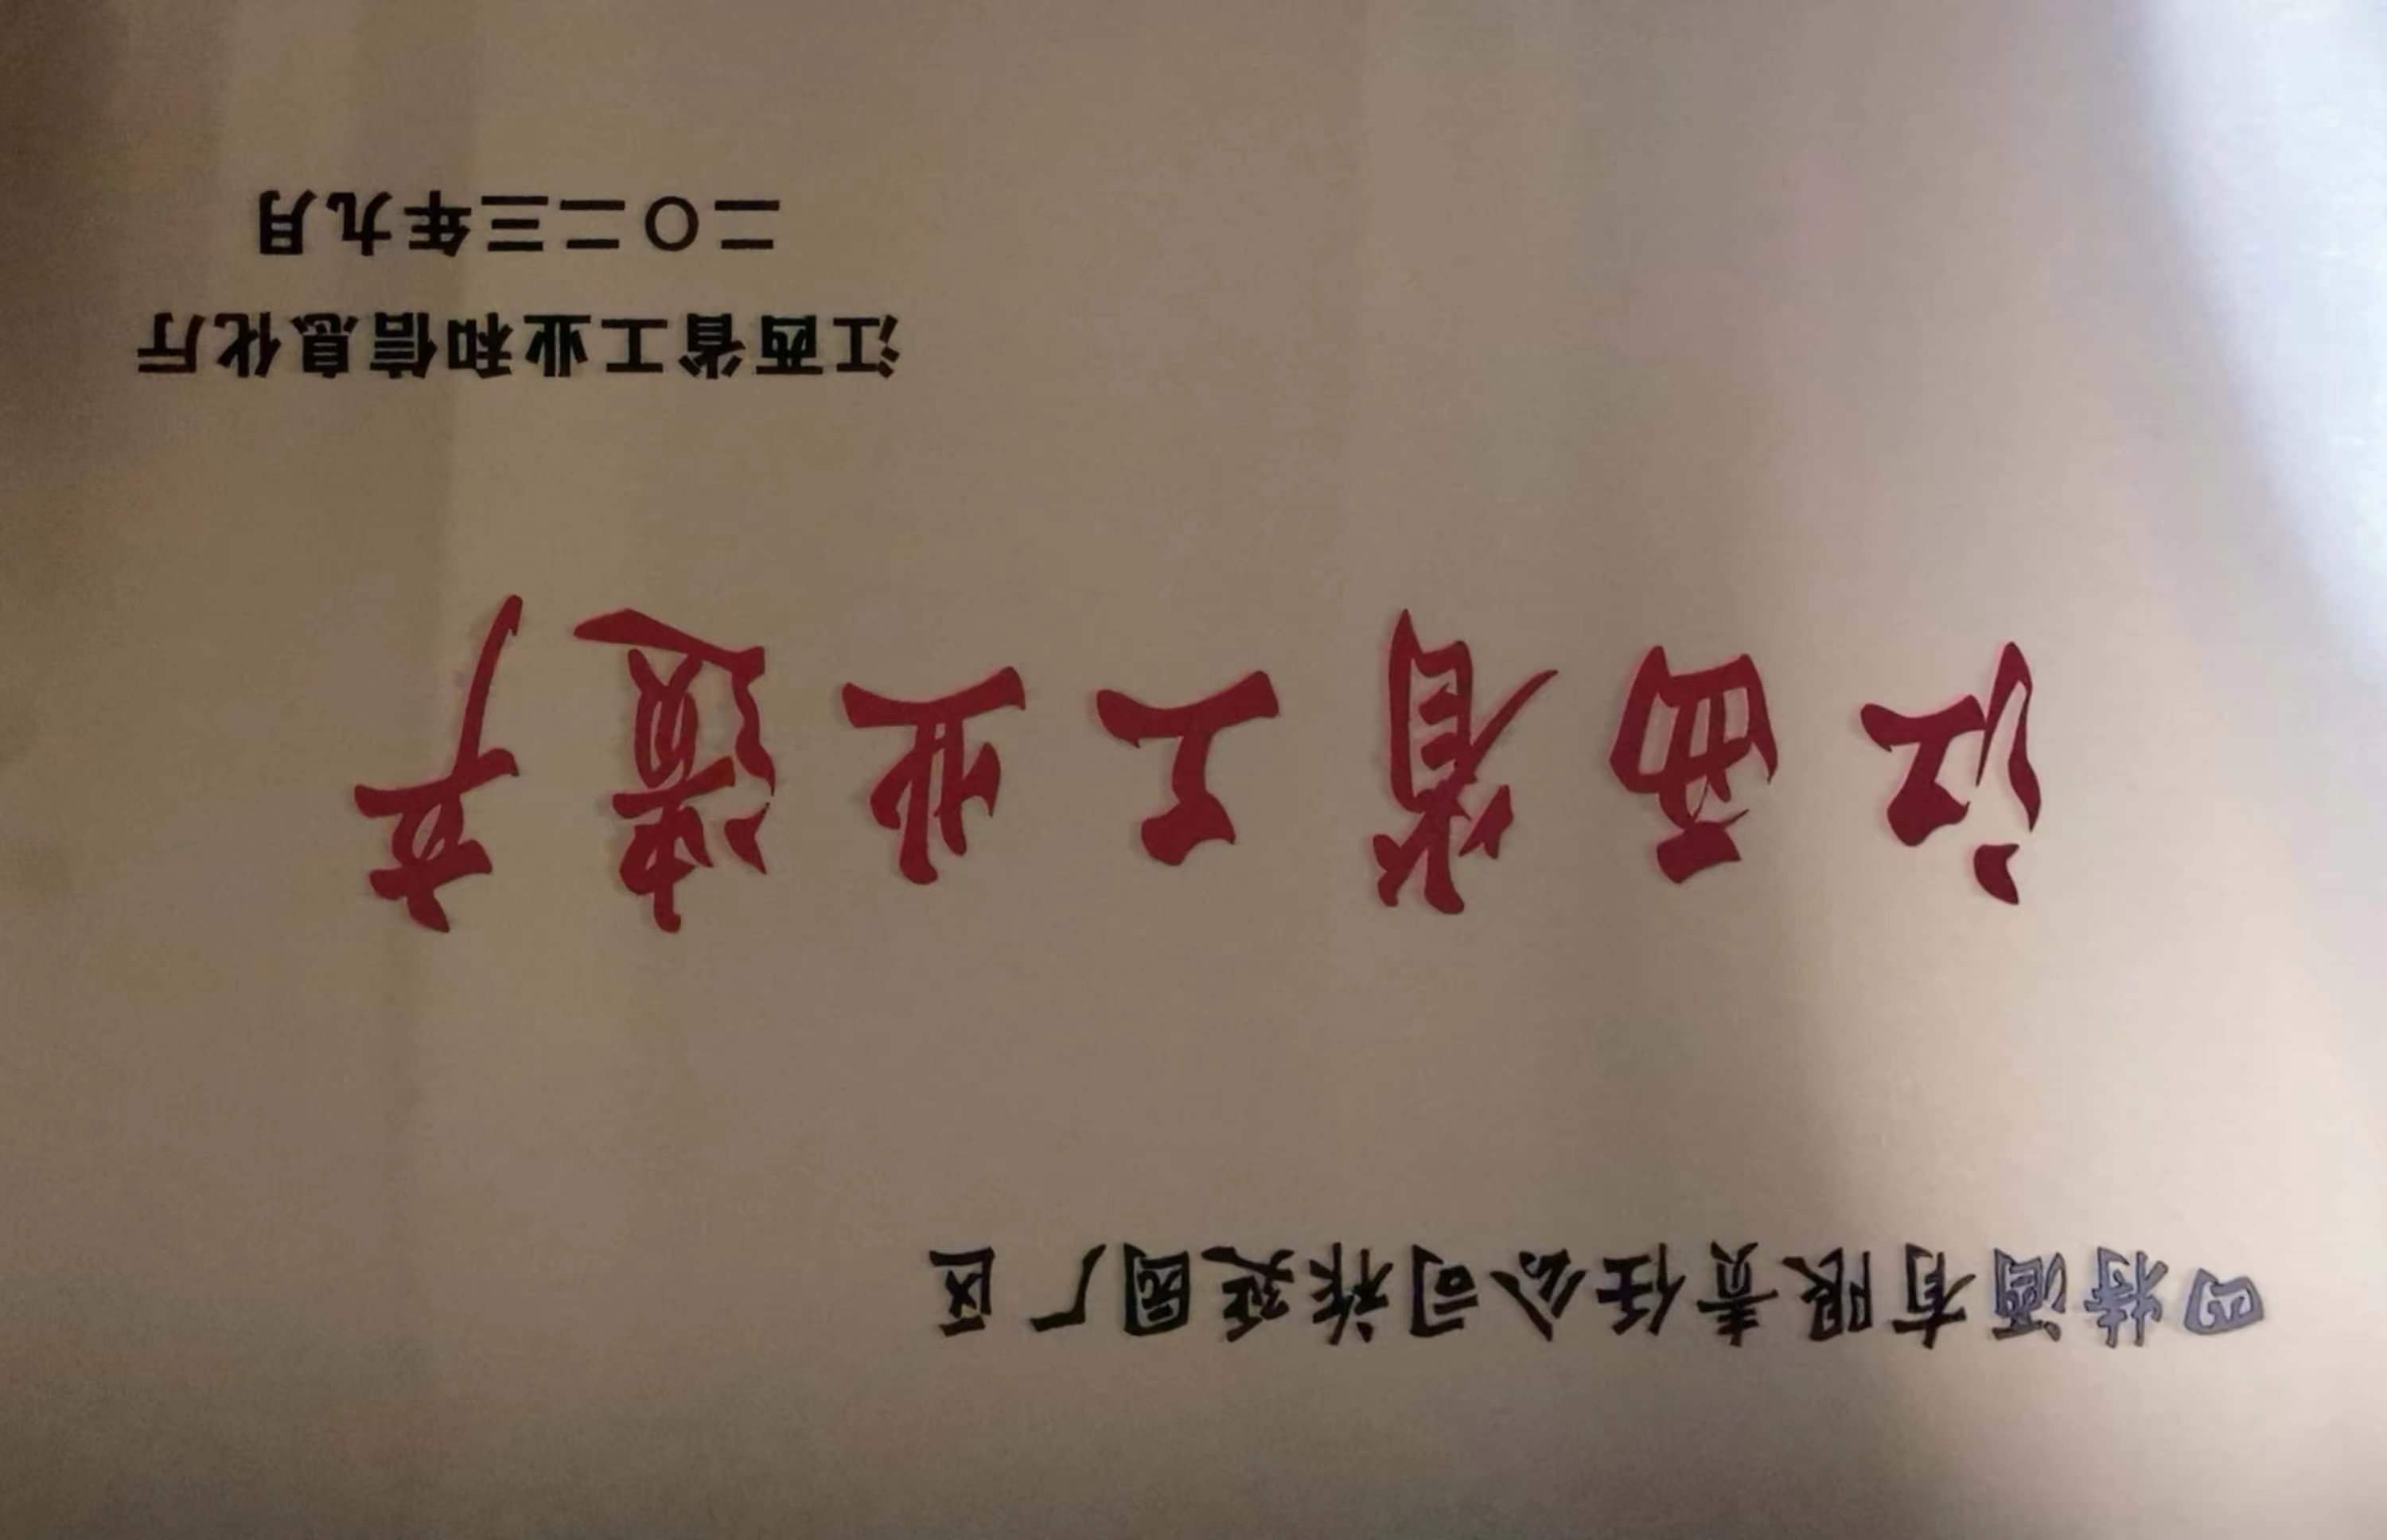 四特酒有限责任公司祚莛园厂区
江西省工业遗产
江西省工业和信息化厅
二〇二三年九月